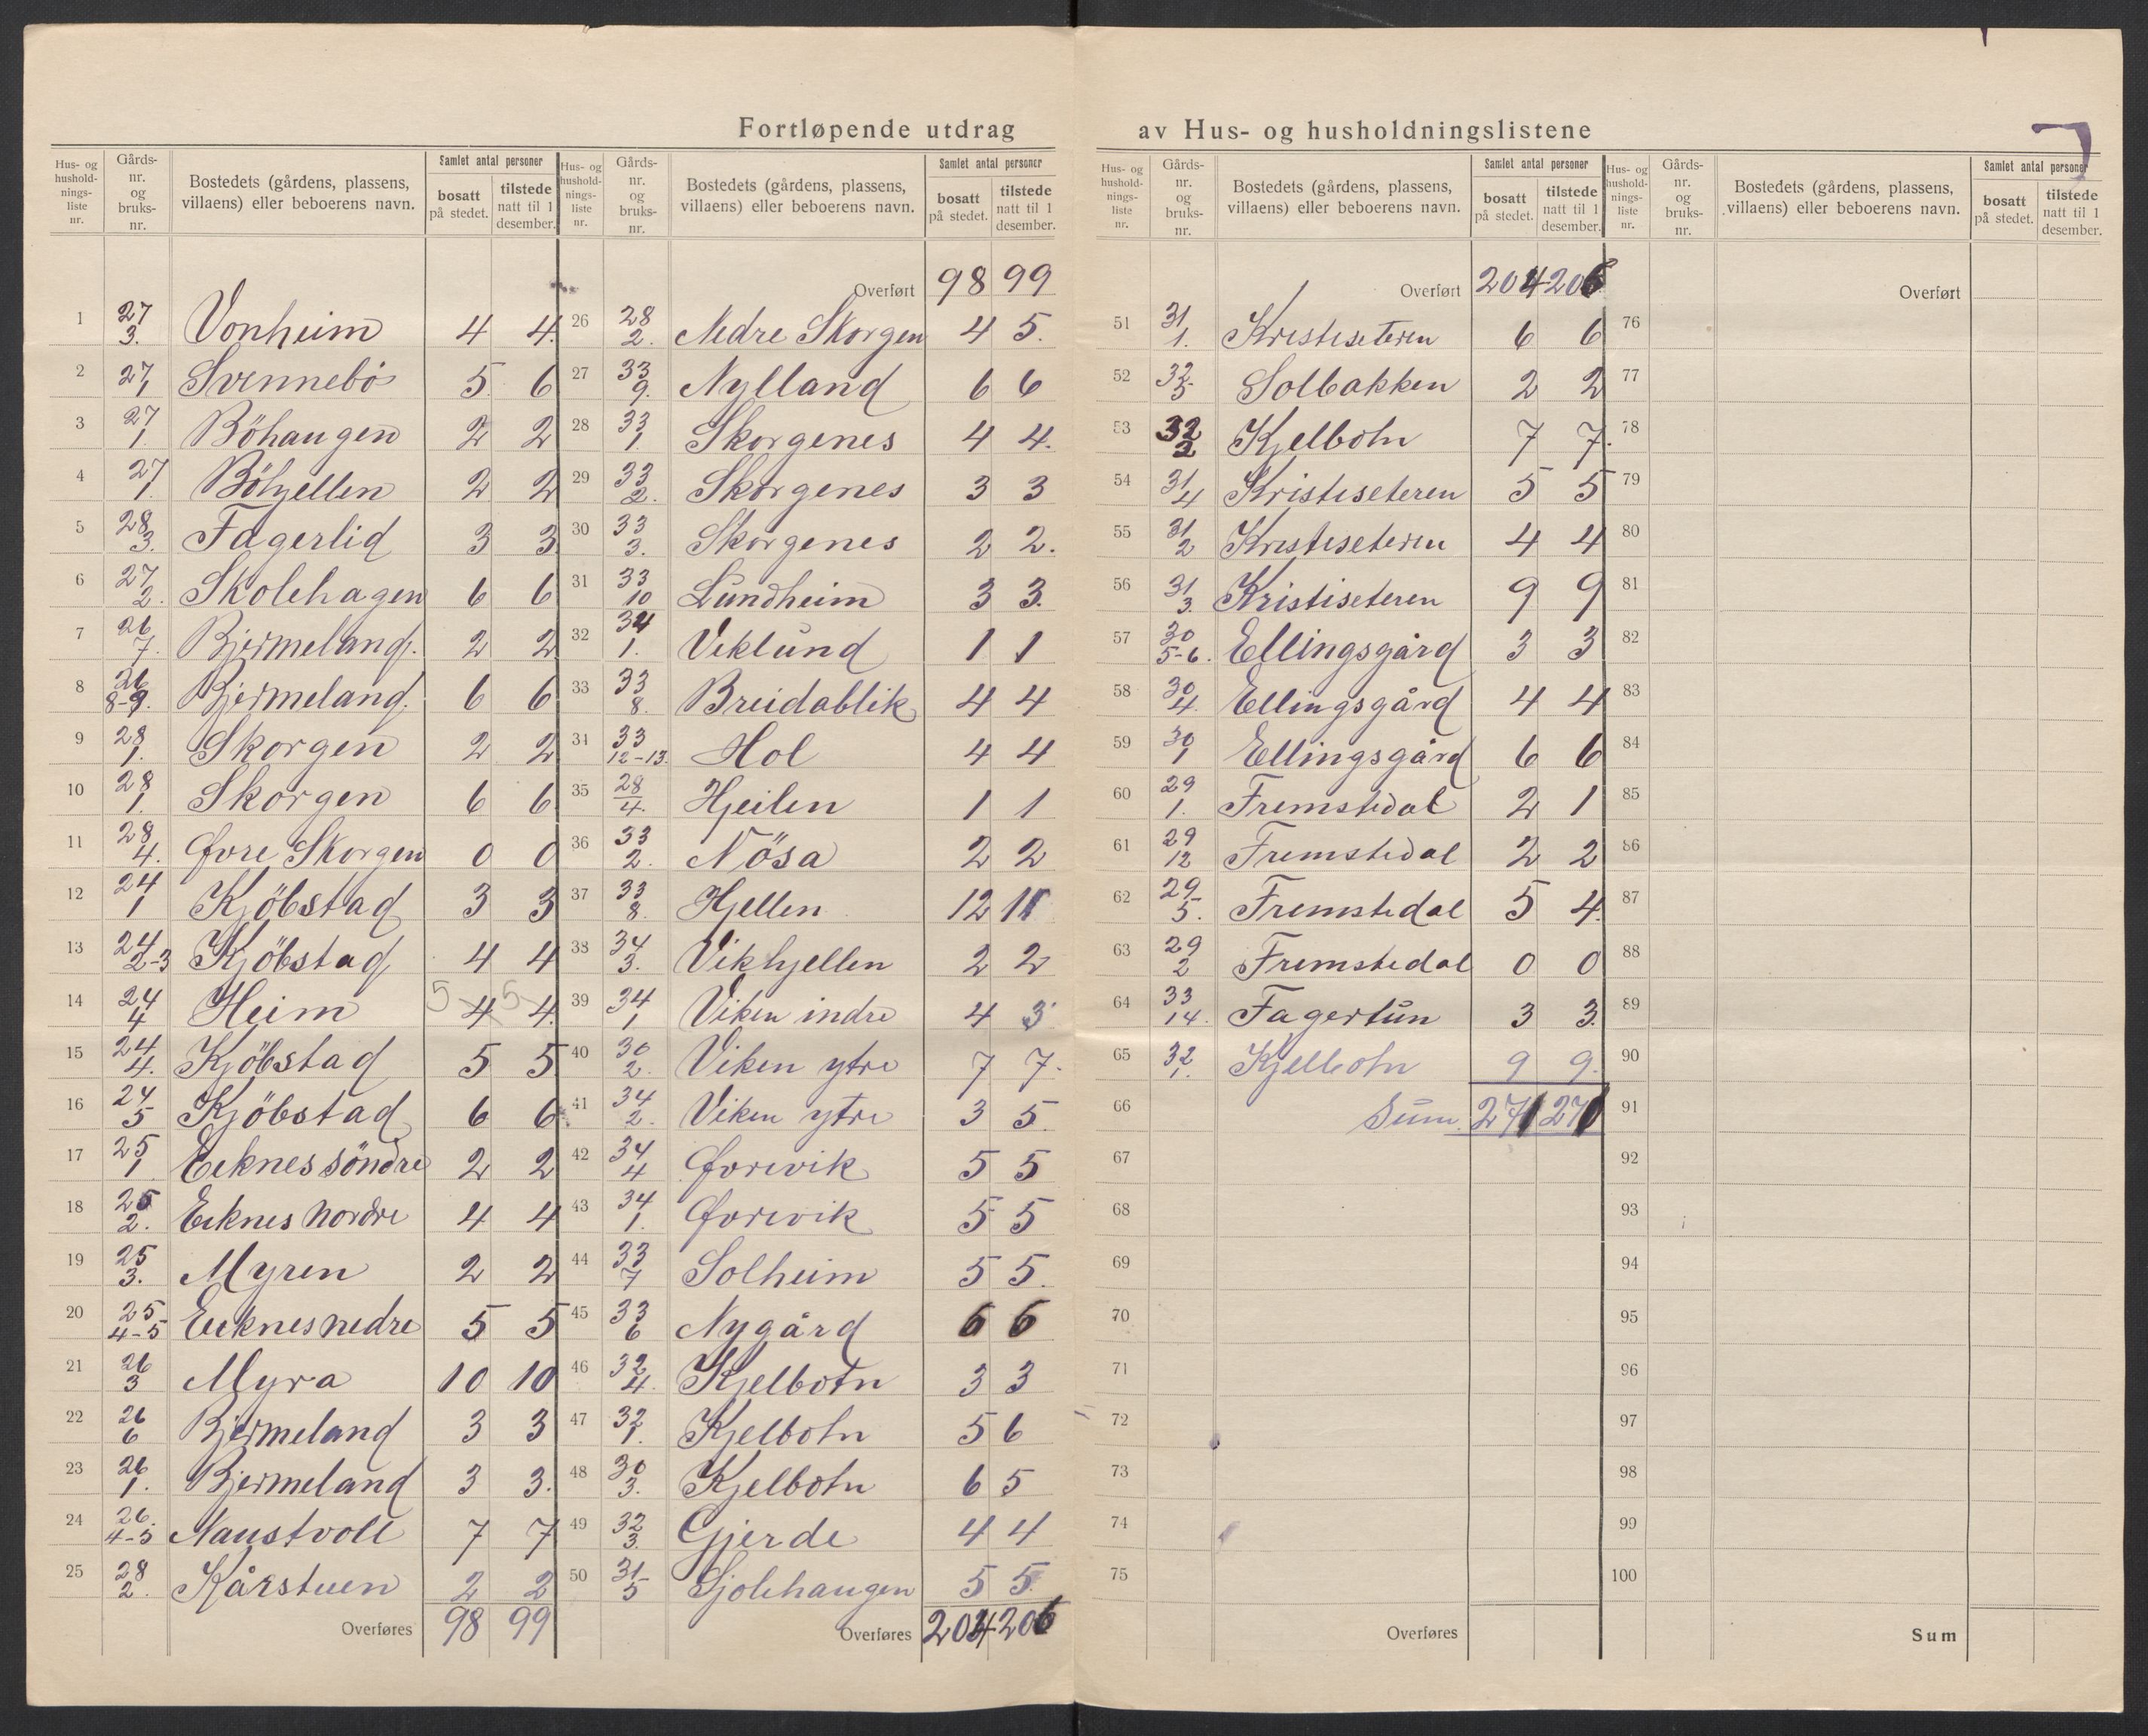 Fortløpende utdrag av Hus- og husholdningslistene
Hus- og hushold-nings-liste nr. | Gårds-nr. og bruks-nr. | Bostedets (gårdens, plassens, villaens) eller beboerens navn. | Samlet antal personer bosatt på stedet. | tilstede natt til 1 desember.
1 27/3. Vonheim 4 4.
2 27/1 Svennebö 5 6
3 27/1. Böhaugen 2 2
4 27/1. Böhjellen 2 2
5 28/3. Fagerlid 3 3
6 27/2. Skolehagen 6 6
7 26/7. Bjermeland. 2 2
8 26/8-9. Bjermeland. 6 6
9 28/1. Skorgen 2 2
10 28/1. Skorgen 6 6
11 28/4. Øvre Skorgen 0 0
12 24/1 Kjöbstad 3 3
13 24/2-3 Kjöbstad 4 4
14 24/4 Heim 5 4 5 4.
15 24/4. Kjöbstad 5 5
16 24/5 Kjöbstad 6 6
17 25/1 Eeknes söndre 2 2
18 25/2. Eeknes nordre 4 4
19 25/3. Myren 2 2
20 25/4-5 Eeknes nedre 5 5
21 26/3 Myra 10 10
22 26/6 Bjermeland 3 3
23 26/1. Bjermeland 3 3.
24 26./4-5 Naustvoll 7 7
25 28/2. Kårstuen 2 2
Overføres 98 99
Hus- og hushold-nings-liste nr. | Gårds-nr. og bruks-nr. | Bostedets (gårdens, plassens, villaens) eller beboerens navn. | Samlet antal personer bosatt på stedet. | tilstede natt til 1 desember.
Overført 98 99
26 28/2. Nedre Skorgen 4 5.
27 33/9. Nylland 6 6
28 33/1. Skorgenes 4 4.
29 33/2. Skorgenes 3 3
30 33/3. Skorgenes 2 2.
31 33/10 Lundheim 3 3.
32 34/1. Viklund 1 1
33 33/8. Breidablik 4 4
34 33/12-13. Hol 4 4
35 28/4. Hjeilen 1 1
36 33/2. Nösa 2 2
37 33/8. Hjellen 12 11
38 34/3. Vikhjellen 2 2
39 34/1 Viken indre 4 3
40 30/2. Viken ytre 7 7.
41 34/2. Viken ytre 3 5.
42 34/4 Øvrevik 5 5
43 34/1. Øvrevik 5 5
44 33/7 Solheim 5 5.
45 33/6 Nygård 6 6
46 32/4. Kjelbotn 3 3
47 32/1. Kjelbotn 5 6
48 30/3. Kjelbotn 6 5
49 32/3. Gjerde 4 4
50 31/5 Sjolehaugen 5 5.
Overføres 204 206
Hus- og hushold-nings-liste nr. | Gårds-nr. og bruks-nr. | Bostedets (gårdens, plassens, villaens) eller beboerens navn. | Samlet antal personer bosatt på stedet. | tilstede natt til 1 desember.
Overført 204 206
51 31/1. Kristiseteren 6 6
52 32/5 Solbakken 2 2
53 32/2 Kjelbotn 7 7.
54 31/4 Kristiseteren 5 5
55 31/2 Kristiseteren 4 4
56 31/3. Kristiseteren 9 9
57 30/5-6. Ellingsgård 3 3
58 30/4. Ellingsgård 4 4
59 30/1 Ellingsgård 6 6
60 29/1. Fremstedal 2 1
61 29/12 Fremstedal 2 2
62 29/5. Fremstedal 5 4.
63 29/2 Fremstedal 0 0
64 33/14. Fagertun 3 3.
65 32/1. Kjelbotn 9 9.
66 Sum. 271 271
67
68
69
70
71
72
73
74
75
Overføres
Hus- og hushold-nings-liste nr. | Gårds-nr. og bruks-nr. | Bostedets (gårdens, plassens, villaens) eller beboerens navn. | Samlet antal personer bosatt på stedet. | tilstede natt til 1 desember.
Overført
76
77
78
79
80
81
82
83
84
85
86
87
88
89
90
91
92
93
94
95
96
97
98
99
100
Sum